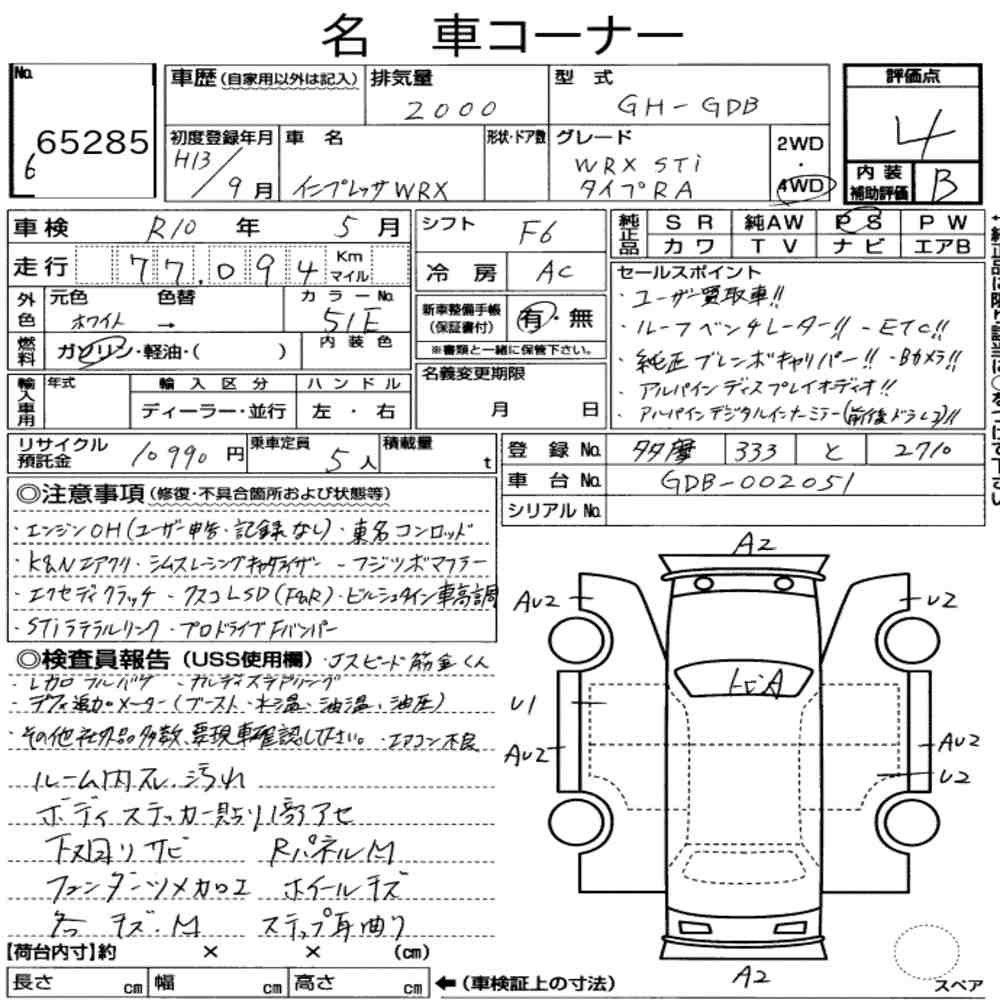 名 車コーナー
No.
65285
6
車歴(自家用以外は記入)
排気量
2000
型式
GH-GDB
評価点
4
初度登録年月
H13/9月
車名
インプレッサWRX
形状・ドア数
グレード
WRX STi
タイプRA
2WD
・
4WD
内装
補助評価
B
車検 R10年 5月
シフト F6
純正品
SR 純AW PS PW
カワ TV ナビ エアB
走行 77,094 Km マイル
冷房 AC
セールスポイント
・ユーザー買取車!!
・ルーフベンチレーター!! ・ETC!!
・純正ブレンボキャリパー!! ・Bカメラ!!
・アルパインディスプレイオーディオ!!
・アルパインデジタルインナーミラー(前後ドラレコ)!!
外色
元色 色替 カラーNo.
ホワイト → 51E
新車整備手帳
(保証書付)
有・無
※書類と一緒に保管下さい。
燃料
ガソリン・軽油・( )
内装色
名義変更期限
月 日
輸入車用
年式 輸入区分 ハンドル
ディーラー・並行 左・右
リサイクル
預託金
10990円
乗車定員
5人
積載量
t
登録No. 多摩 333 と 2710
車台No. GDB-002051
シリアルNo.
◎注意事項(修復・不具合箇所および状態等)
・エンジンOH(ユーザー申告・記録なし)・東名コンロッド
・K&Nエアクリ・シムスレーシングキャタライザー ・フジツボマフラー
・エクセディクラッチ ・クスコLSD(F&R)・ビルシュタイン車高調
・STiラテラルリンク ・プロドライブFバンパー
◎検査員報告(USS使用欄)・Jスピード筋金くん
・レカロフルバケ ・ナルディステアリング
・デフィ追加メーター(ブースト・水温、油温、油圧)
・その他社外品多数、要現車確認して下さい。・エアコン不良
ルーム内スレ、汚れ
ボディステッカー貼り1部アセ
下回りサビ Rパネル M
フェンダーツメカロエ ホイールキズ
各キズ・M ステップ耳曲り
【荷台内寸】約 × × (cm)
長さ cm 幅 cm 高さ cm
←(車検証上の寸法)
A2
AU2
U2
U1
AU2
AU2
U2
A2
スペア